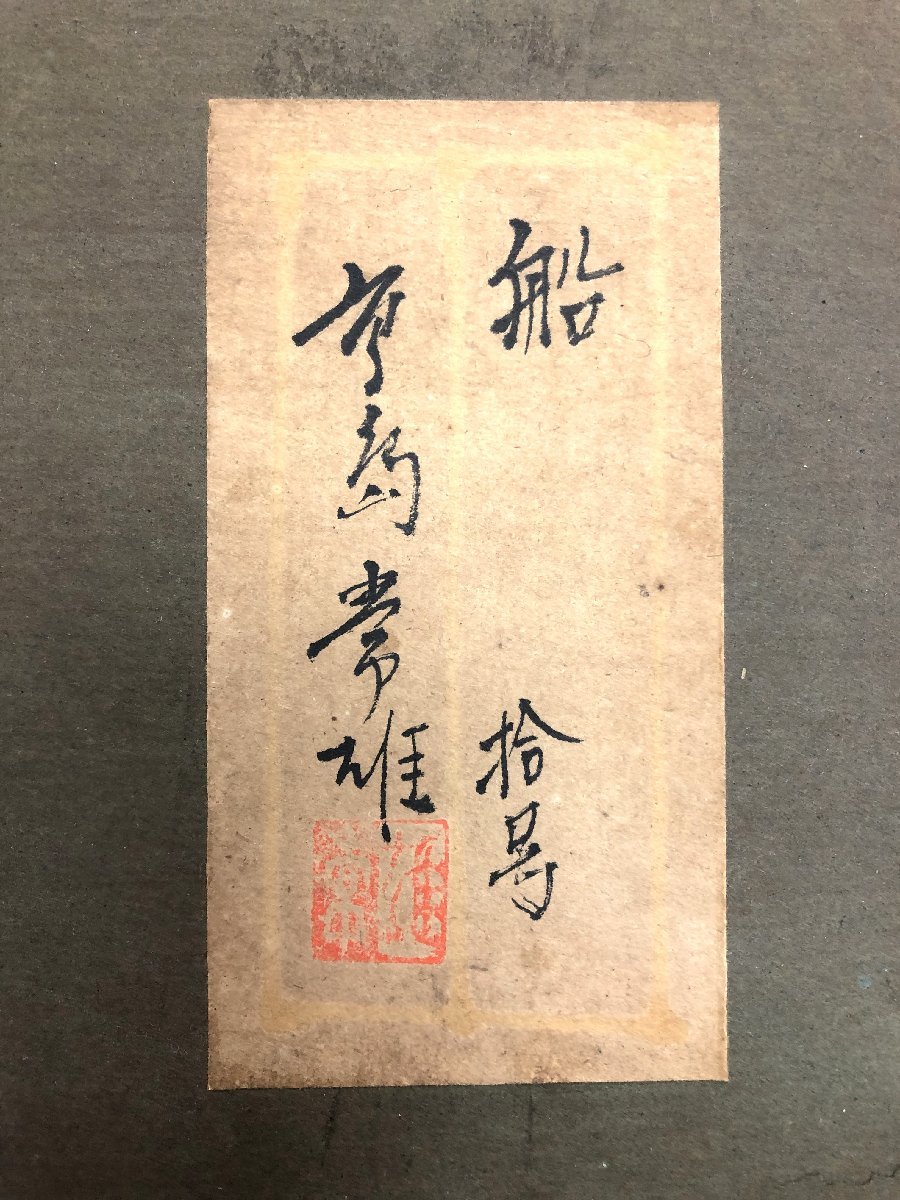 船 拾号
高島常雄